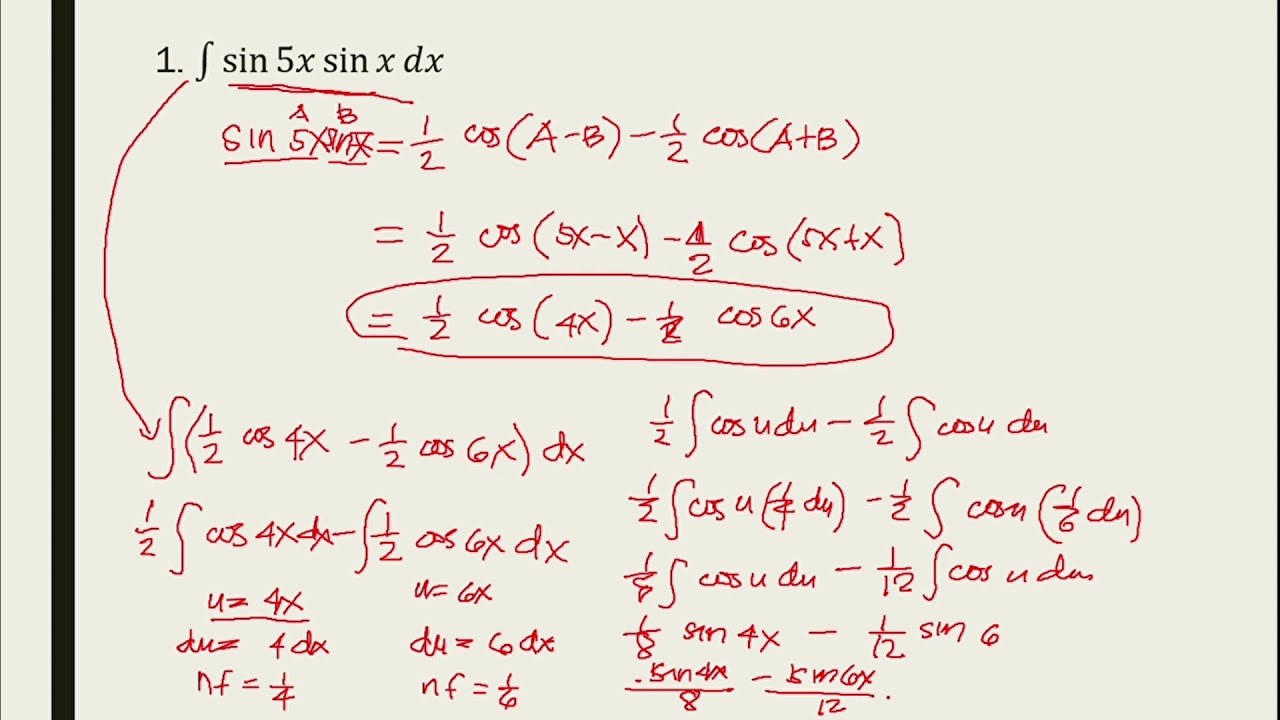 1. ∫ sin 5x sin x dx
A B
sin 5x sin x = 1/2 cos(A-B) - 1/2 cos(A+B)
= 1/2 cos(5x-x) - 1/2 cos(5x+x)
= 1/2 cos(4x) - 1/2 cos 6x
∫(1/2 cos 4x - 1/2 cos 6x) dx
1/2 ∫ cos 4x dx - ∫ 1/2 cos 6x dx
u = 4x
du = 4 dx
nf = 1/4
u = 6x
du = 6 dx
nf = 1/6
1/2 ∫ cos u du - 1/2 ∫ cos u du
1/2 ∫ cos u (1/4 du) - 1/2 ∫ cos u (1/6 du)
1/8 ∫ cos u du - 1/12 ∫ cos u du
1/8 sin 4x - 1/12 sin 6
sin 4x/8 - sin 6x/12.